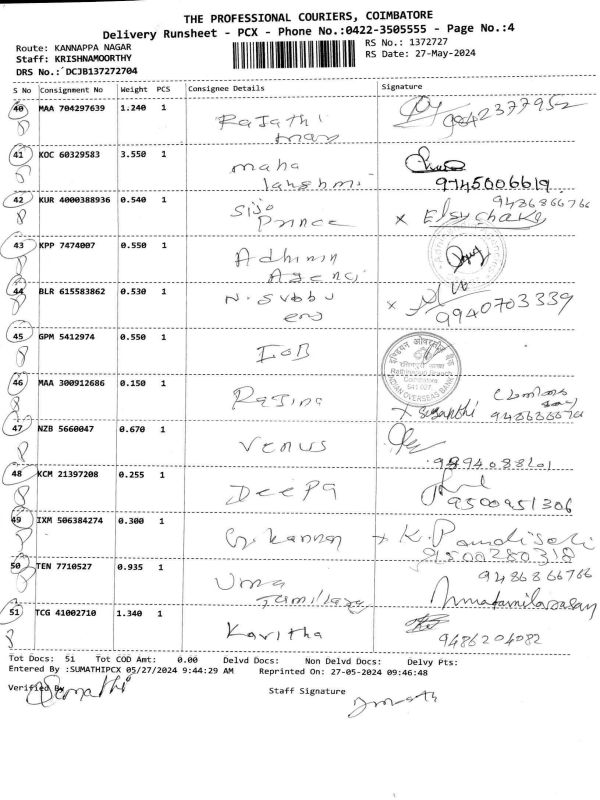 THE PROFESSIONAL COURIERS, COIMBATORE
Delivery Runsheet - PCX - Phone No.:0422-3505555 - Page No.:4
Route: KANNAPPA NAGAR
RS No.: 1372727
Staff: KRISHNAMOORTHY
RS Date: 27-May-2024
DRS No.: DCJB137272704
S No Consignment No Weight PCS Consignee Details Signature
40 MAA 704297639 1.240 1
Rajathi
41 KOC 60329583 3.550 1
maha
lakshmi
9745006619
42 KUR 4000388936 0.540 1
Sijo
Prince
9486866766
x Elsy chake
43 KPP 7474007 0.550 1
Adhinin
Agenci
44 BLR 615583862 0.530 1
N. Subbu
x 9940703339
45 GPM 5412974 0.550 1
IOB
इण्डियन ओवरसीज बैंक
Rathinapuri Branch
Coimbatore
641 027.
INDIAN OVERSEAS BANK
46 MAA 300912686 0.150 1
Rajina
47 NZB 5660047 0.670 1
Venus
48 KCM 21397208 0.255 1
Deepa
9500951306
49 IXM 506384274 0.300 1
G. Kannan
9500280318
50 TEN 7710527 0.935 1
Uma
Tamillarag
9486866766
Umatamilarasan
51 TCG 41002710 1.340 1
Kavitha
9486204082
Tot Docs: 51 Tot COD Amt: 0.00 Delvd Docs: Non Delvd Docs: Delvy Pts:
Entered By :SUMATHIPCX 05/27/2024 9:44:29 AM Reprinted On: 27-05-2024 09:46:48
Verified By Sumathi
Staff Signature